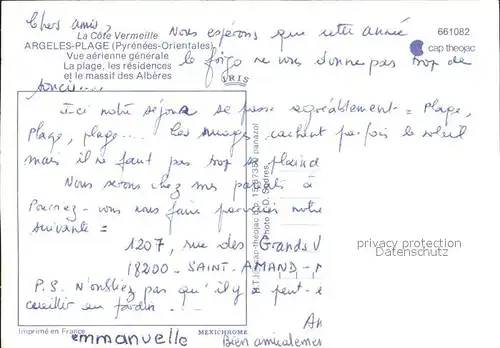 Chers amis,
La Côte Vermeille
ARGELES-PLAGE (Pyrénées-Orientales)
Vue aérienne générale
La plage, les résidences
et le massif des Albères
661082
cap theojac
IRIS
Nous espérons que cette année
le frigo ne vous donne pas trop de
soucis...
Ici notre séjour se passe agréablement = plage,
plage, plage.... Les nuages cachent parfois le soleil
mais il ne faut pas trop se plaind
Nous serons chez mes parents à
Pourriez-vous nous faire parvenir notre
suivante =
1207, rue des Grands V
18200 - SAINT-AMAND-
P.S. N'oubliez pas qu'il y a peut-ê
cueillir en jardin...
An
emmanuelle
Bien amicalement
Imprimé en France
MEXICHROME
privacy protection
Datenschutz